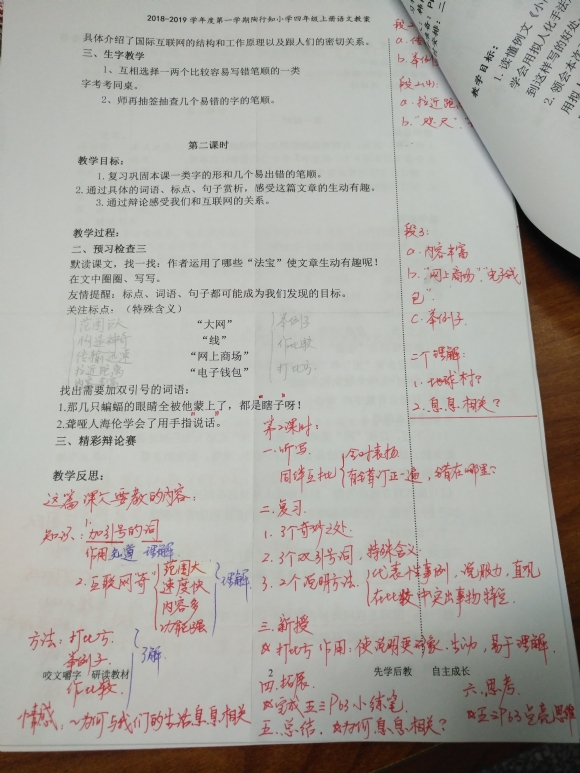 2018-2019 学年度第一学期陶行知小学四年级上册语文教案
具体介绍了国际互联网的结构和工作原理以及跟人们的密切关系。
三、生字教学
1、互相选择一两个比较容易写错笔顺的一类
字考考同桌。
2、师再抽签抽查几个易错的字的笔顺。
第二课时
教学目标：
1.复习巩固本课一类字的形和几个易出错的笔顺。
2.通过具体的词语、标点、句子赏析，感受这篇文章的生动有趣。
3.通过辩论感受我们和互联网的关系。
教学过程：
二、预习检查三
默读课文，找一找：作者运用了哪些“法宝”使文章生动有趣呢！
在文中圈圈、写写。
友情提醒：标点、词语、句子都可能成为我们发现的目标。
关注标点：（特殊含义）
范围巨大 “大网” 举例子
构造神奇 “线” 作比较
传输迅速 “网上商场” 打比方
拉近距离 “电子钱包”
找出需要加双引号的词语：
1.那几只蝙蝠的眼睛全被他蒙上了，都是瞎子呀！
2.聋哑人海伦学会了用手指说话。
三、精彩辩论赛
教学反思：
这篇课文要教的内容：
知识：1.加引号的词
作用 知道 理解
2.互联网奇 范围大
速度快 理解
内容多
功能强
方法：打比方
举例子 了解
作比较
情感：~为何与我们的生活息息相关
段二
b.举例子
段三(4)：
a.拉近距
b.“咫尺”
段5：
a.内容丰富
b.“网上商场”“电子钱
包”
c.举例子
二个理解：
1.地球村？
2.息息相关？
第2课时：
一.听写
同伴互批 全对表扬
有错订正一遍，错在哪里？
二.复习
1.3个奇妙之处：
2.3个双引号词，特殊含义
3.2个说明方法 代表个生事例，说服力，直观
在比较中突出事物特征
三.新授
☆打比方 作用：使说明更形象、生动，易于理解.
四.拓展
☆完成五三P63小练笔
五.总结，☆为何息息相关？
六.思考
☆五三P63点亮思维
咬文嚼字 研读教材 2 先学后教 自主成长
教学目标：
1.读懂例文《小
学会用拟人化手法
到这样写的好处
2.领会本次
用拟人